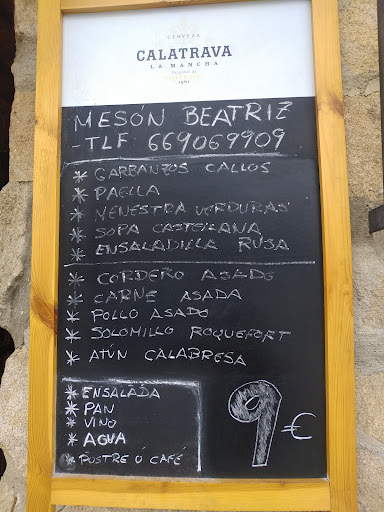 CERVEZA
CALATRAVA
LA MANCHA
1961
MESÓN BEATRIZ
-TLF 669069909
* GARBANZOS CALLOS
* PAELLA
* MENESTRA VERDURAS
* SOPA CASTELLANA
* ENSALADILLA RUSA
* CORDERO ASADO
* CARNE ASADA
* POLLO ASADO
* SOLOMILLO ROQUEFORT
* ATÚN CALABRESA
* ENSALADA
* PAN
* VINO
* AGUA
* POSTRE Ó CAFÉ
9 €